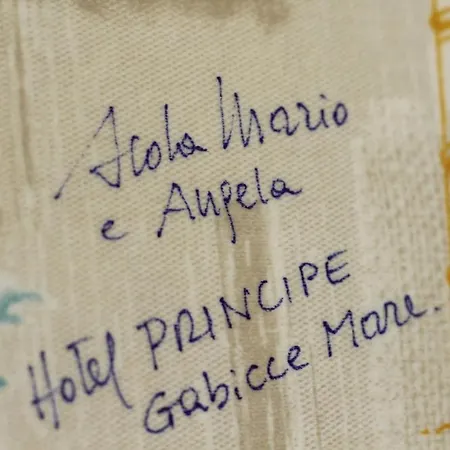 Scola Mario
e Angela
Hotel PRINCIPE
Gabicce Mare.